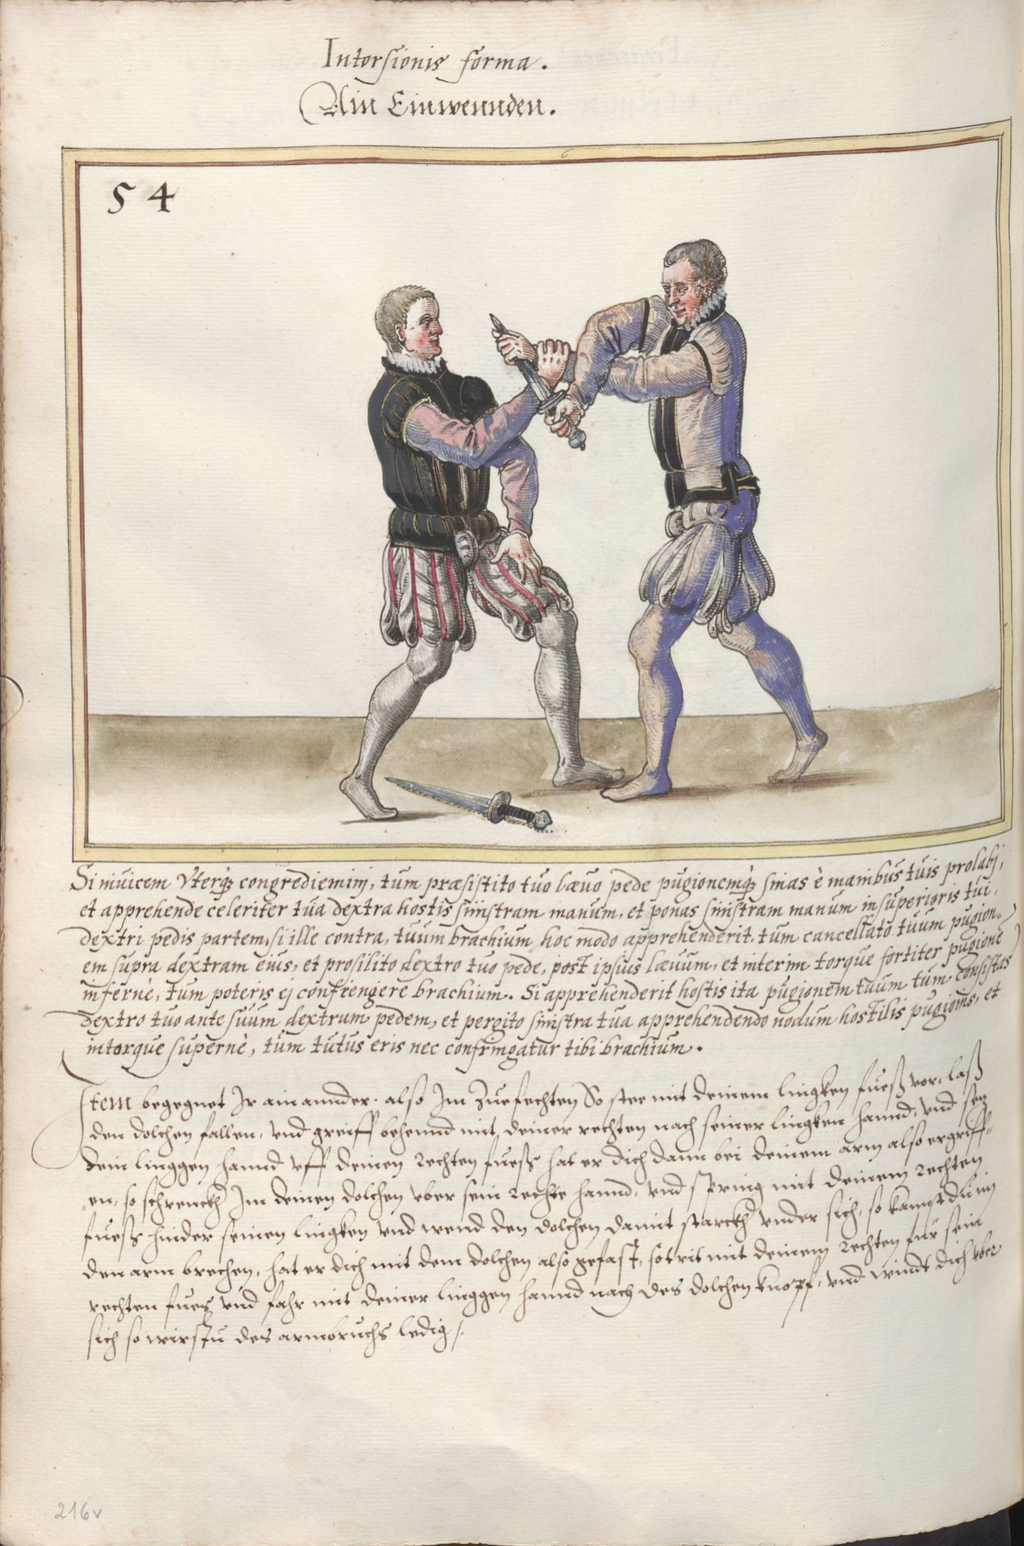 Intorsionis forma.
Ain Einwennden.
54
Si invicem Vterq3 congrediemini, tum præsistito tuo lævo pede pugionemq3 sinas è manibus tuis prolabj,
et apprehende celeriter tua dextra hostis sinistram manum, et ponas sinistram manum in superioris tui
dextri pedis partem, si ille contra, tuum brachium hoc modo apprehenderit, tum cancellato tuum pugion-
em supra dextram eius, et prosilito dextro tuo pede, post ipsius lævum, et interim torque fortiter pugione
infernè, tum poteris ej confrengere brachium. Si apprehenderit hostis ita pugionem tuum tum consistas
dextro tuo ante suum dextrum pedem, et pergito sinistra tua apprehendendo nodum hostilis pugionis, et
intorque supernè, tum tutus eris nec confringatur tibi brachium.
Item begegnet Ir ainannder also Im Zuefechten So stee mit deinem lingken fuess vor, lass
den dolchen fallen, vnd greiff behennd mit deiner rechten nach seiner lingken hannd, vnd setz
dein linggen hannd vff deinen rechten fuess hat er dich dann bei deinem arm also ergriff-
en, so schrenckh Im deinen dolchen vber sein rechte hannd, vnd spring mit deinem rechten
fuess hinder seinen lingken vnd wend den dolchen damit starckh vnder sich, so kanstu Im
den arm brechen, hat er dich mit dem dolchen also gefast, so trit mit deinem rechten für sein
rechten fuess vnd fahr mit deiner linggen hannd nach des dolchen knopf, vnd windt dich vber
sich so wirstu des armbruchs ledig.
216v